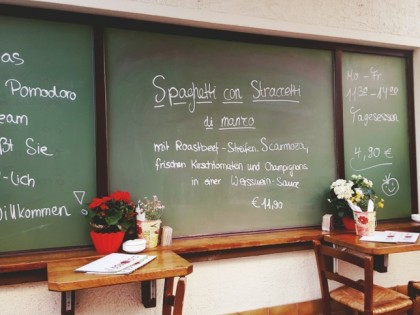 as
Pomodoro
eam
ßt Sie
-lich
Willkommen!
Spaghetti con Straccetti
di manzo
mit Roastbeef-Streifen, Scarmoza,
frischen Kirschtomaten und Champignons
in einer Weisswein-Sauce
€ 11,90
Mo - Fr.
1130 - 1430
Tagesessen
4,90 €